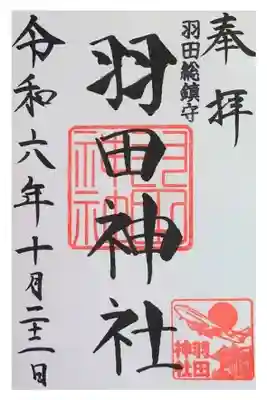 奉拝
羽田総鎮守
羽田神社
令和六年十月二十二日
羽田
神社
羽田
神社